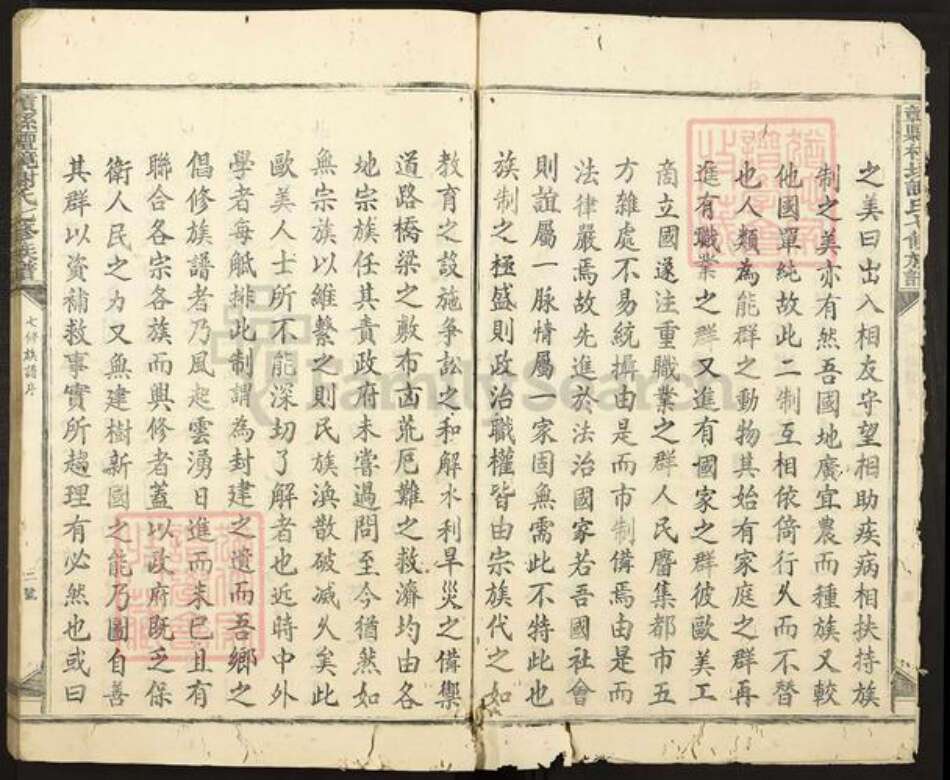 之美曰出入相友守望相助疾病相扶持族
制之美亦有然吾國地廣宜農而種族又較
他國單純故此二制互相依倚行久而不替
也人類為能群之動物其始有家庭之群再
進有職業之群又進有國家之群彼歐美工
商立國遂注重職業之群人民廳集都市五
方雜處不易統攝由是而市制備焉由是而
法律嚴焉故先進於法治國家若吾國社會
則誼屬一脉情屬一家固無需此不特此也
族制之極盛則政治職權皆由宗族代之如
教育之設施爭訟之和解水利旱災之備禦
道路橋梁之敷布凶荒厄難之救濟均由各
地宗族任其責政府未嘗過問至今猶然如
無宗族以維繫之則民族渙散破滅久矣此
歐美人士所不能深切了解者也近時中外
學者每觝排此制謂為封建之遺而吾鄉之
倡修族譜者乃風起雲湧日進而未已且有
聯合各宗各族而興修者蓋以政府既乏保
衛人民之力又無建樹新國之能乃圖自善
其群以資補救事實所趨理有必然也或曰
七修族譜序
二號
FamilySearch